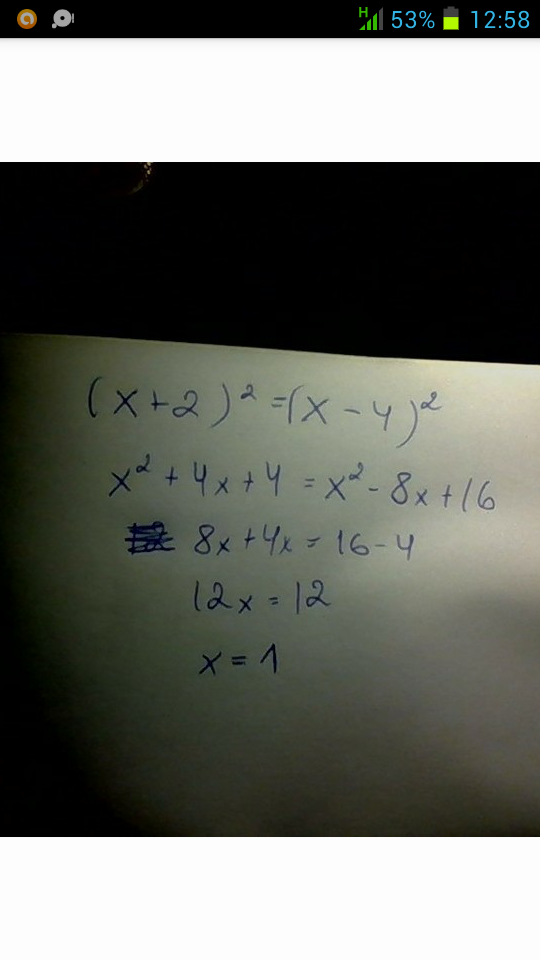 H 53% 12:58
(x+2)² = (x-4)²
x² + 4x + 4 = x² - 8x + 16
8x + 4x = 16 - 4
12x = 12
x = 1